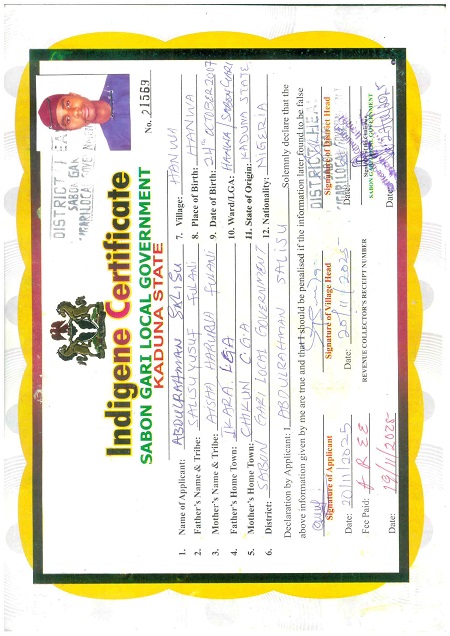 No. 21569
DISTRICT HEAD
SABON GARI
Indigene Certificate
SABON GARI LOCAL GOVERNMENT
KADUNA STATE
1. Name of Applicant: ABDULRAHMAN SALISU
2. Father's Name & Tribe: SALISU YUSUF FULANI
3. Mother's Name & Tribe: AISHA HARUNA FULANI
4. Father's Home Town: IKARA LGA
5. Mother's Home Town: CHIKUN LGA
6. District: SABON GARI LOCAL GOVERNMENT
7. Village: HANWA
8. Place of Birth: HANWA
9. Date of Birth: 24TH OCTOBER 2007
10. Ward/LGA: HANWA/SABON GARI
11. State of Origin: KADUNA STATE
12. Nationality: NIGERIA
Declaration by Applicant: I ABDULRAHMAN SALISU Solemnly declare that the
above information given by me are true and that I should be penalised if the information later found to be false
Signature of Applicant
Date: 20/11/2025
Signature of Village Head
Date: 20/11/2025
DISTRICT HEAD
Signature of District Head
Date:
Fee Paid: FREE
REVENUE COLLECTOR'S RECEIPT NUMBER
SABON GARI LOCAL GOVERNMENT
Date: 19/11/2025
Date: